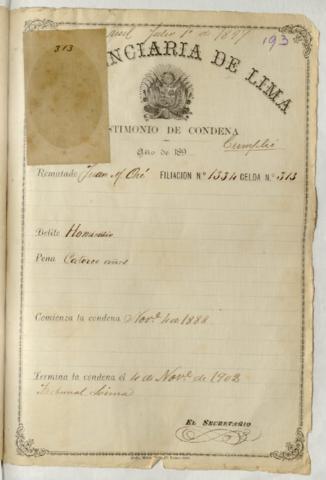 Julio 1º de 1897
193
313
NCIARIA DE LIMA
STIMONIO DE CONDENA
Año de 189
Cumplió
Rematado Juan M. Oré FILIACION N.º 1334 CELDA N.º 313
Delito Homicidio
Pena Catorce años
Comienza la condena Nov.e 4 de 1888
Termina la condena el 4 de Nov.e de 1902
Tribunal Lima
EL SECRETARIO